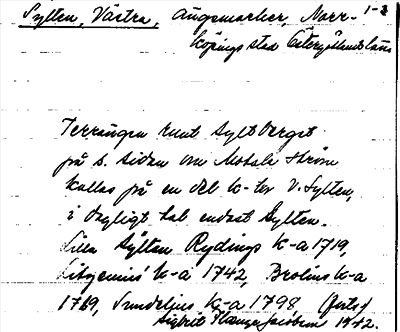 Sylten, Västra, ängsmarker, Norr- 1-2
köpings stad Östergötlands län
Terrängen runt Syltberget
på s. sidan om Motala ström
kallas på en del k-tor V. Sylten,
i dagligt tal endast Sylten.
Lilla Sylten Rydings k-a 1719,
k-a 1742, Brolins k-a
1769, Sundelius k-a 1798 (forts)
Sigfrid 1942.